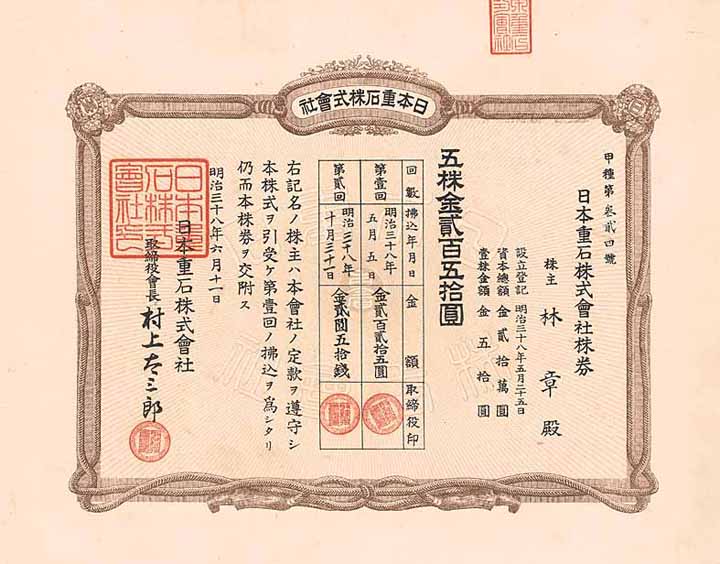 日本重石株式會社
甲種第叁貳四號
日本重石株式會社株券
株主 林 章 殿
設立登記 明治三十八年五月二十五日
資本總額 金貳拾萬圓
壹株金額 金五拾圓
五株金貳百五拾圓
回數 拂込年月日 金額 取締役印
第壹回 明治三十八年五月五日 金貳百貳拾五圓
第貳回 明治三十八年十月三十一日 金貳圓五拾錢
右記名ノ株主ハ本會社ノ定款ヲ遵守シ
本株式ヲ引受ケ第壹回ノ拂込ヲ為シタリ
仍而本株券ヲ交附ス
明治三十八年六月十一日
日本重石株式會社
取締役會長 村上太三郎